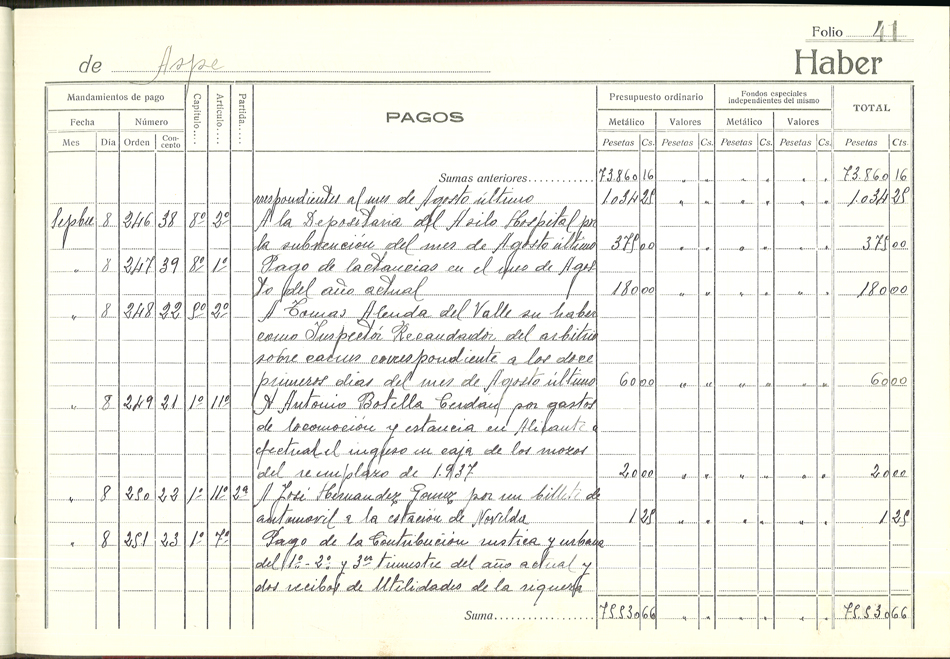 Folio 41
de Aspe Haber
Mandamientos de pago Capítulo.... Artículo.... Partida.... PAGOS Presupuesto ordinario Fondos especiales independientes del mismo TOTAL
Fecha Número Metálico Valores Metálico Valores
Mes Dia Orden Concepto Pesetas Cs. Pesetas Cs. Pesetas Cs. Pesetas Cs. Pesetas Cts.
Sumas anteriores............ 73.860 16 " " " " " " 73.860 16
rrespondientes al mes de Agosto último 1.034 25 " " " " " " 1.034 25
Sepbre 8 246 38 8º 2º A la Depositaria del Asilo Hospital por
la subvención del mes de Agosto último 375 00 " " " " " " 375 00
" 8 247 39 8º 1º Pago de lactancias en el mes de Agos
to del año actual 180 00 " " " " " " 180 00
" 8 248 22 9º 2º A Tomas Alenda del Valle su haber
como Inspector Recaudador del arbitrio
sobre carnes correspondiente a los doce
primeros dias del mes de Agosto último 60 00 " " " " " " 60 00
" 8 249 21 1º 11º A Antonio Botella Cerdán por gastos
de locomoción y estancia en Alicante
efectual el ingreso en caja de los mozos
del reemplazo de 1.937 20 00 " " " " " " 20 00
" 8 250 22 1º 11º 2ª A José Hernandez Gomez por un billete de
automovil a la estación de Novelda 1 25 " " " " " " 1 25
" 8 251 23 1º 7º Pago de la Contribución rustica y urbana
del 1º- 2º y 3er trimestre del año actual y
dos recibos de Utilidades de la riqueza
Suma.................... 75.530 66 " " " " " " 75.530 66